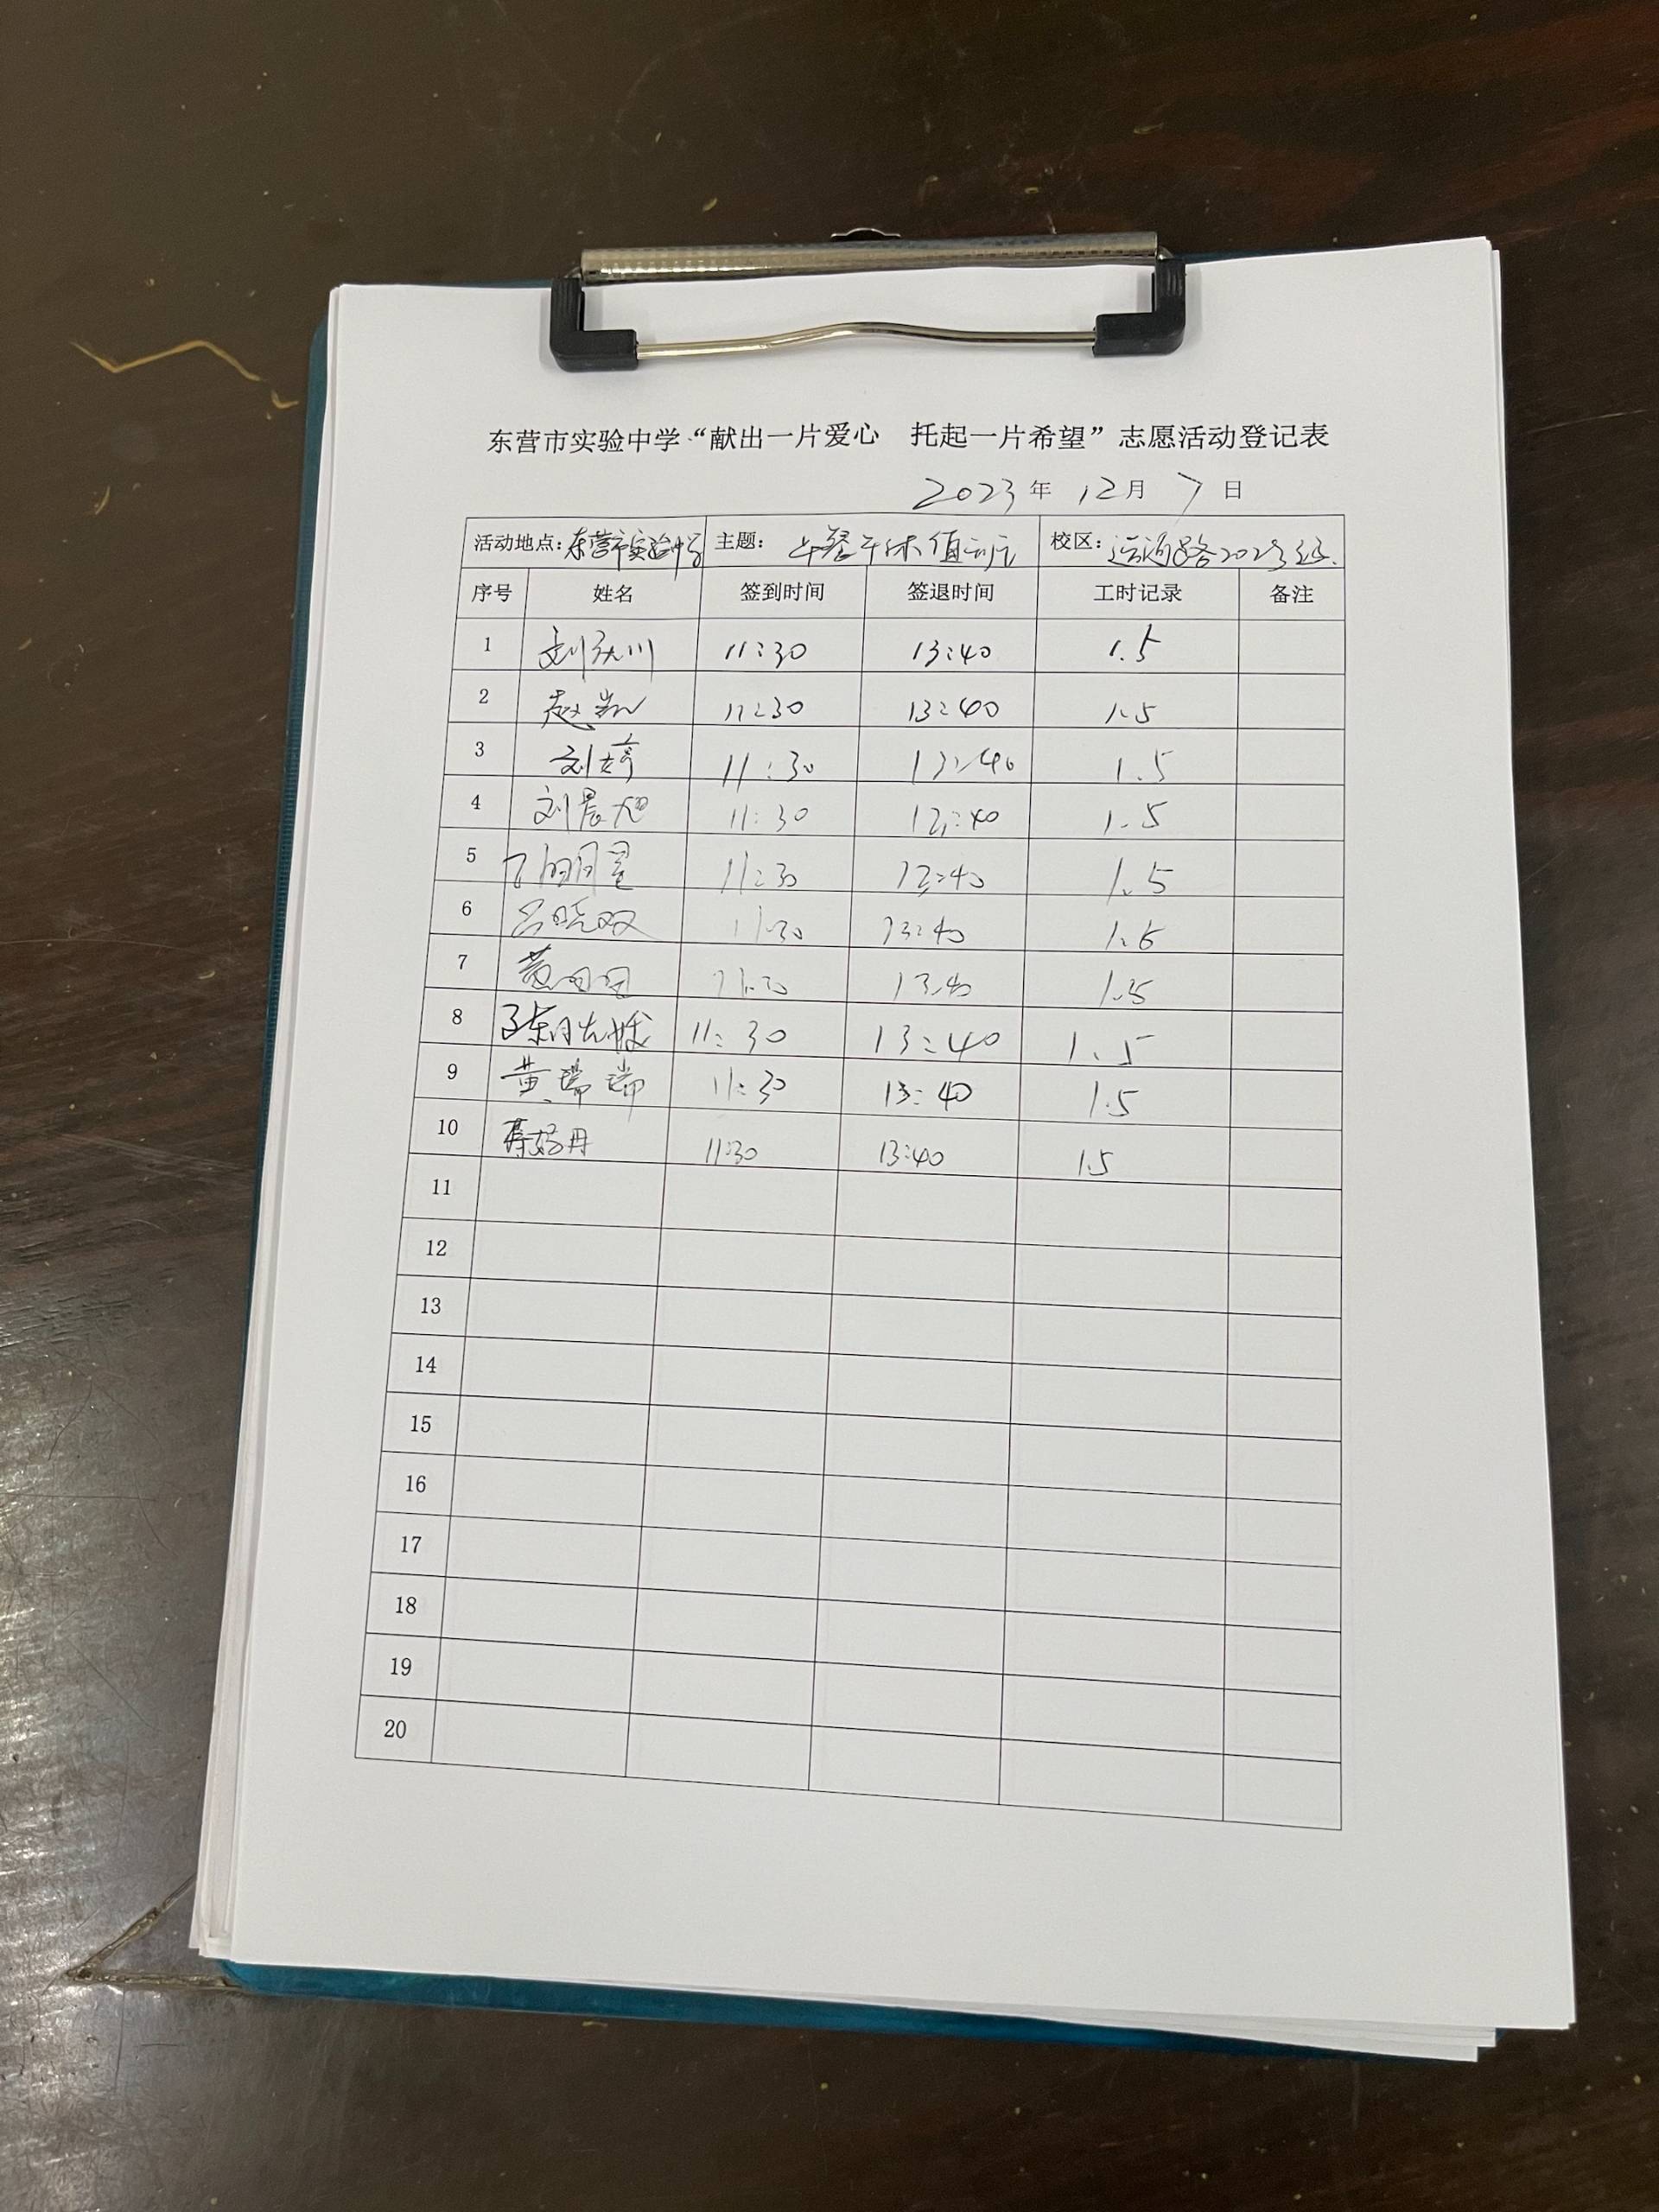 东营市实验中学“献出一片爱心 托起一片希望”志愿活动登记表
2023年 12月 7日
活动地点:东营市实验中学 主题: 午餐午休值 校区: 运河路2023级
序号 姓名 签到时间 签退时间 工时记录 备注
1 11:30 13:40 1.5
2 赵凯 11:30 13:40 1.5
3 刘婷 11:30 13:40 1.5
4 刘晨旭 11:30 13:40 1.5
5 11:30 13:40 1.5
6 吕晓双 11:30 13:40 1.5
7 11:30 13:40 1.5
8 11:30 13:40 1.5
9 黄瑞瑞 11:30 13:40 1.5
10 11:30 13:40 1.5
11
12
13
14
15
16
17
18
19
20